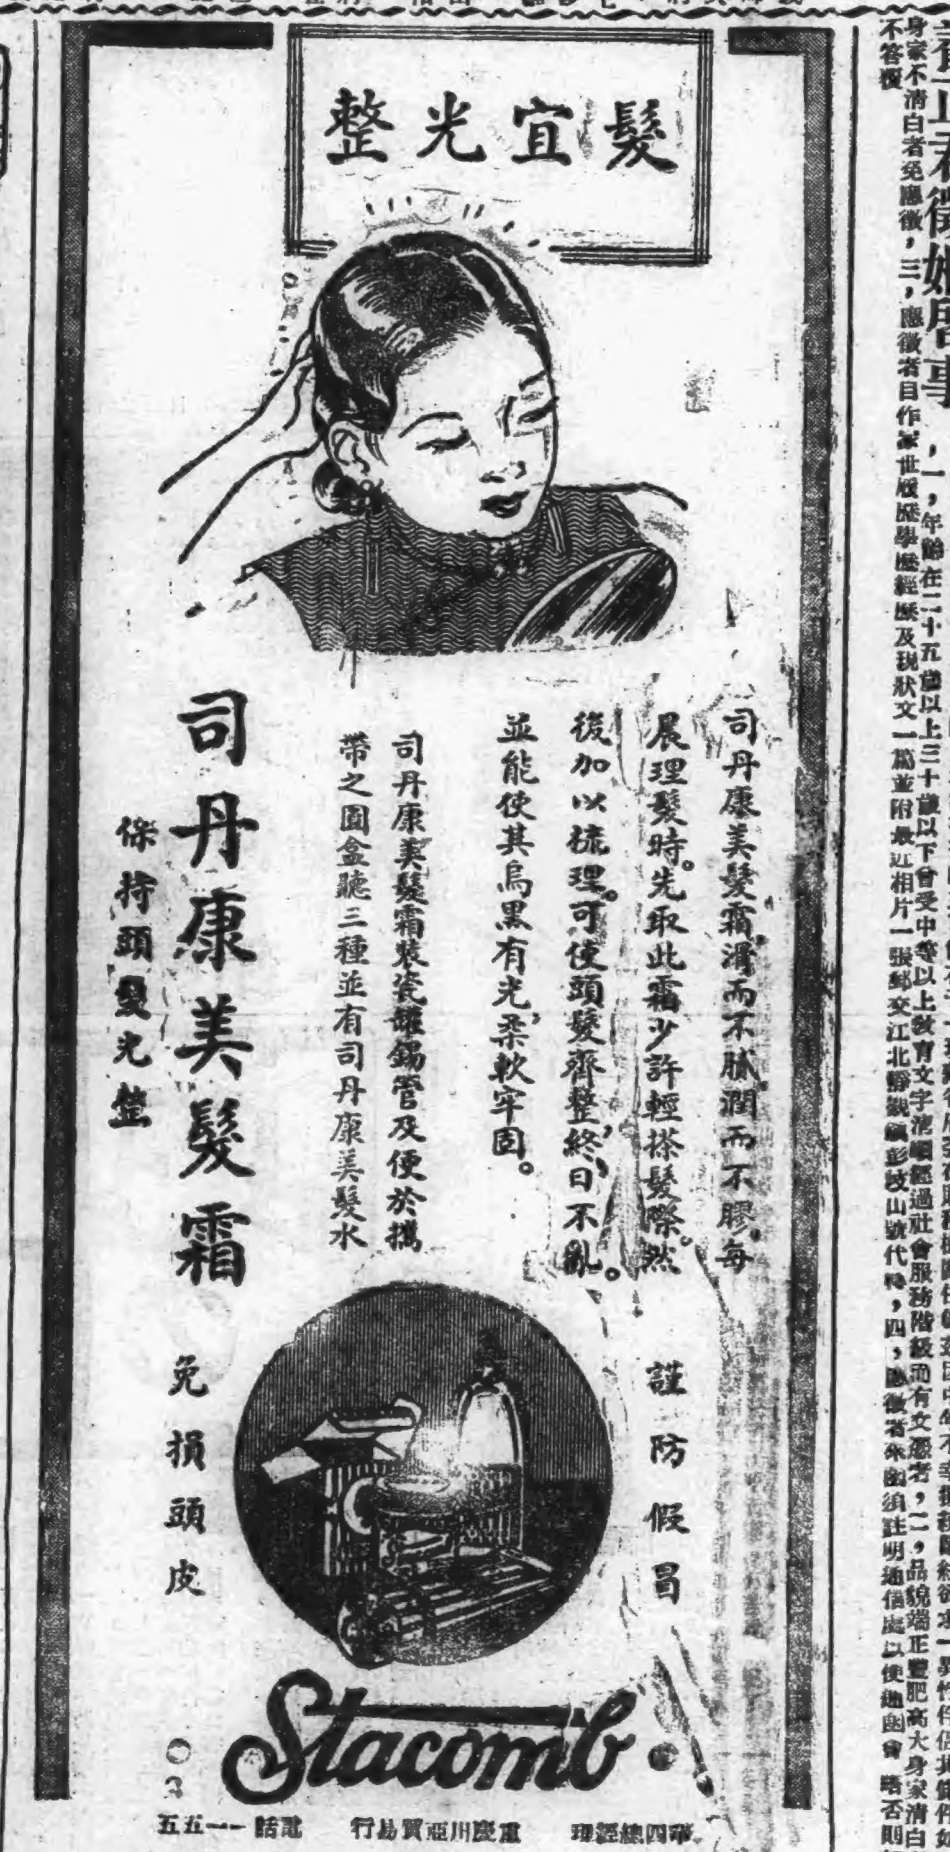 髮宜光整
司丹康美髮霜滑而不膩潤而不膠每
晨理髮時先取此霜少許輕搽髮際然
後加以梳理可使頭髮齊整終日不亂。
並能使其烏黑有光柔軟牢固。
司丹康美髮霜裝瓷罐錫管及便於攜
帶之圓盒聽三種並有司丹康美髮水
司丹康美髮霜
保持頭髮光整
免損頭皮
謹防假冒
Stacomb
電話一一五五
重慶川亞貿易行
總經理
徵婚啓事
,一,年齡在二十五歲以上三十歲以下曾受中等以上教育文字清順經過社會服務階級而有文憑者,二,品貌端正豐肥高大身家清白
身家不清白者免應徵,三,應徵者自作家世履歷學歷經歷及現狀文一篇並附最近相片一張郵交江北靜觀鎮彭歧山號代轉,四,應徵者來函須註明通信處以便通函會晤否則
不答覆